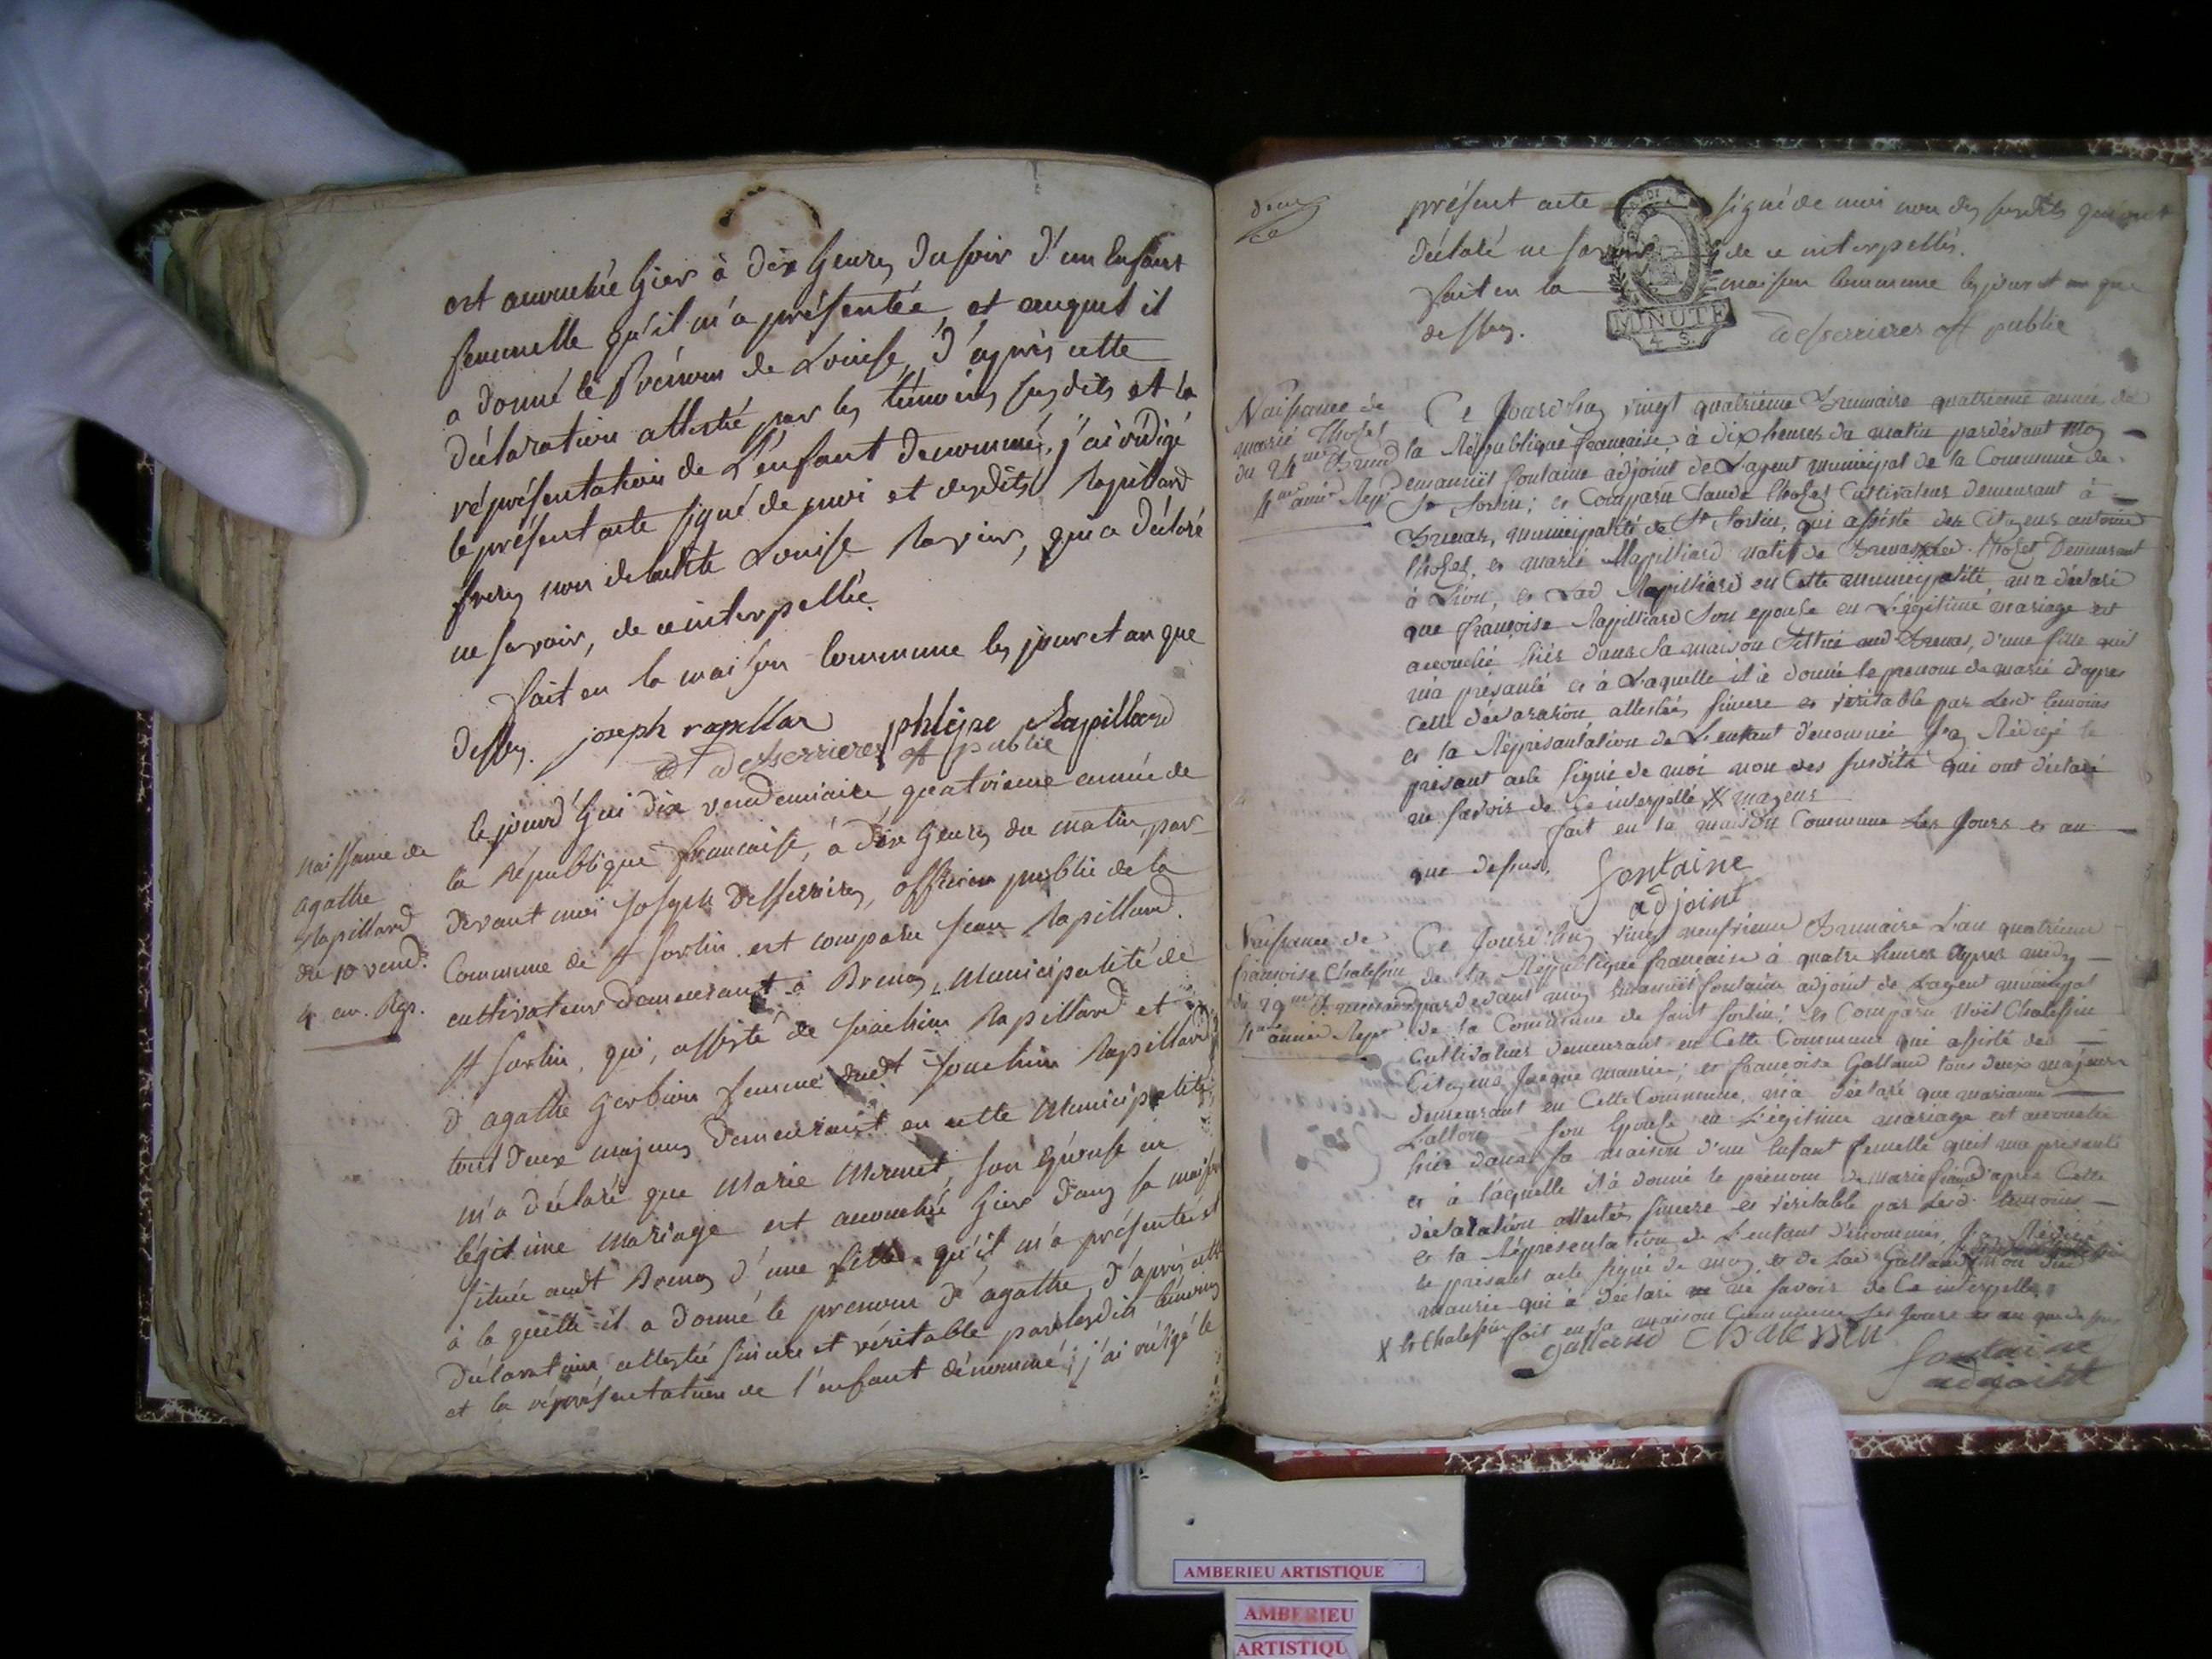 est accouchée hier à dix heures du soir d'un enfant
femmelle qu'il m'a présentée, et auquel il
a donné le prénom de Louise, d'après cette
déclaration attestée par les témoins susdits et la
réprésentation de l'enfant denommé, j'ai rédigé
le présent acte signé de moi et desdits Rapillard
freres non de ladite Louise Ravier, qui a déclaré
ne savoir, de ce interpellée.
fait en la maison commune les jour et an que
dessus. joseph rapillar philipe Rapillard
desserrieres off public
naissance de
agathe
Rapillard
du 10 vend.
4 an. Rep.
le jourd'hui dix vendemiaire quatrieme année de
la République française, à dix heures du matin, par
devant moi Joseph Desserrieres, officier public de la
Commune de St Sorlin est comparu Jean Rapillard
cultivateur demeurant à Brenas, Municipalité de
St Sorlin, qui, assisté de Joachim Rapillard et
d'agathe Gerbieu femme dudt Joachim Rapillard
tout deux majeurs demeurant en cette Municipalité
m'a déclaré que Marie Mermet, son épouse en
légitime mariage est accouchée hier dans sa maison
située audt Brenas d'une fille qu'il m'a présentée et
à laquelle il a donné le prenom d'agathe, d'après cette
déclaration attestée sincere et véritable par lesdits témoins
et la réprésentation de l'enfant dénommé; j'ai rédigé le
présent acte signé de moi non des susdits qui ont
déclaré ne savoir de ce interpellés.
fait en la maison commune les jour et an que
dessus. desserrieres off public
MINUTE
4 S.
Naissance de
marie Thoset
du 24me Brum
4me année Repe
Ce Jourd'huy vingt quatrieme Brumaire quatrieme année de
la République française à dix heures du matin pardevant moy
Emanuel fontaine adjoint de L'agent municipal de la Commune de
St Sorlin; es Comparu Claude Thoset Cultivateur demeurant à
Brenas, municipalité de St Sorlin, qui assisté des Citoyens antoine
Thoset, es marie Rapilliard natif de Brenas Led. Thoset Demeurant
à Lion, es Lad Rapilliard en Cette municipalité, m'a déclaré
que françoise Rapilliard Son epouse en Légitime mariage est
accouchée hier dans Sa maison Sittué aud Brenas, d'une fille quil
m'a présanté es à Laquelle il à donné le prenom de marie d'apres
Cette déclaration, attestée, sincere es véritable par Lesd. temoins
es la Réprésantation de L'enfant dénommée J'ay Rédigé le
présant acte signé de moi non des susdits qui ont déclaré
ne savoir de Ce interpellé X mageurs
fait en la maison Commune Les Jours es an
que dessus. fontaine
adjoint
Naissance de
françoise Chatessin
du 29me Brumaire
4me année Repe
Ce Jourd'huy vingt neufvieme Brumaire L'an quatrieme
de la République française à quatre heures apres midy
pardevant moy Emanuel fontaine adjoint de Lagent municipal
de la Commune de saint sorlin; es Comparu Noël Chatessin
Cultivateur Demeurant en Cette Commune qui assisté des
Citoyens Jacque maurin; es françoise Galland tous deux majeurs
demeurant en Cette Commune, m'a déclaré que marianne
son Epouse en Légitime mariage est accouchée
hier dans sa maison d'un Enfant femelle qu'il ma presanté
es à laquelle il à donné le prénom de marie d'apres Cette
déclaration attestée, sincere es véritable par Lesd. temoins
es la Réprésentation de L'enfant dénommé, J'ay Rédigé
le présent acte signé de moy, es de Lad Galland non dud
maurin qui à déclaré ne savoir de Ce interpellé
X es Chatessin fait en la maison Commune Les Jours es an que dessus
galland Chatessin
fontaine
adjoint
AMBERIEU ARTISTIQUE
AMBERIEU
ARTISTIQU